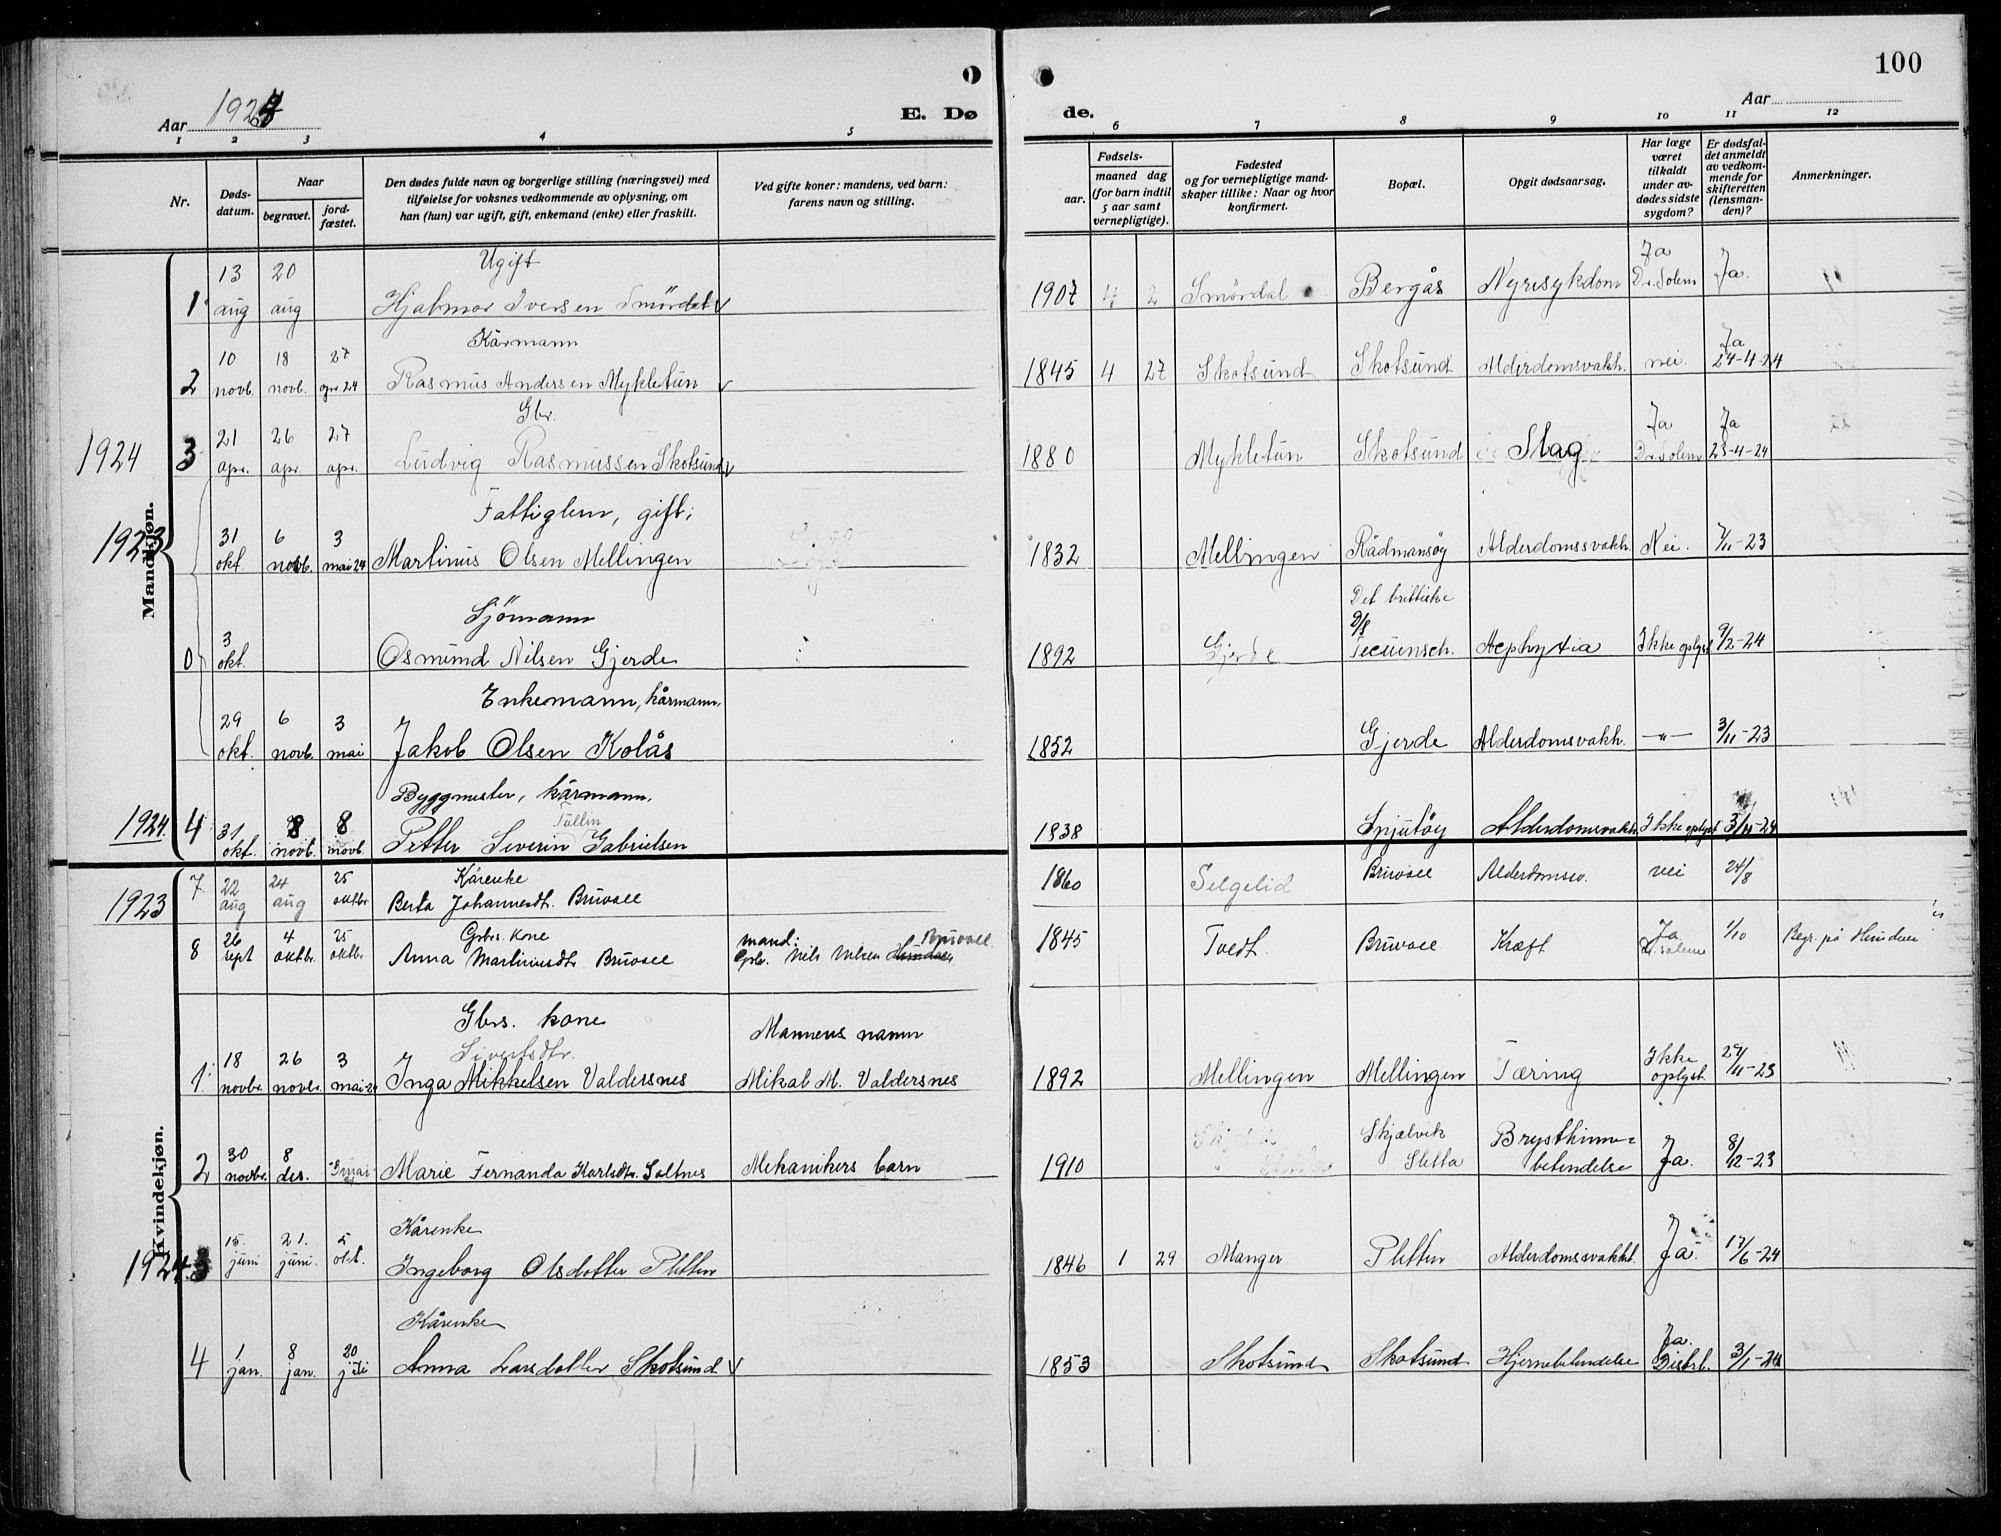 100
Aar 1924
E. Dø
de.
Aar
1 2 3 4 5
6 7 8 9 10 11 12
Nr.
Døds-
datum.
Naar
begravet.
jord-
fæstet.
Den dødes fulde navn og borgerlige stilling (næringsvei) med
tilføielse for voksnes vedkommende av oplysning, om
han (hun) var ugift, gift, enkemand (enke) eller fraskilt.
Ved gifte koner: mandens, ved barn:
farens navn og stilling.
Fødsels-
aar.
maaned dag
(for barn indtil
5 aar samt
vernepligtige).
Fødested
og for vernepligtige mand-
skaper tillike: Naar og hvor
konfirmert.
Bopæl.
Opgit dødsaarsag.
Har læge
været
tilkaldt
under av-
dødes sidste
sygdom?
Er dødsfal-
det anmeldt
av vedkom-
mende for
skifteretten
(lensman-
den)?
Anmerkninger.
Mandkjøn.
Ugift
1 13 aug 20 aug Hjalmar Iversen Smördal v 1907 4 2 Smördal Bergås Nyresykdom Ja Dr. Solem Ja.
Kårmann
2 10 novb. 18 novb. 27 apr. 24 Rasmus Andersen Mykletun v 1845 4 27 Skotsund Skotsund Alderdomsvakh. nei. Ja 24-4-24
Gbr.
1924 3 21 apr. 26 apr. 27 apr. Ludvig Rasmussen Skotsund v 1880 Mykletun Skotsund Slag Ja Dr. Solem Ja 23-4-24
Fattiglem, gift;
1923 0 31 okt. 6 novb. 3 mai 24 Martinus Olsen Mellingen 1832 Mellingen Rådmansøy Alderdomssvakh. Nei. 7/11-23
Sjömann
0 3 okt. Osmund Nilsen Gjerde 1892 Gjerde Det brittiske D/S Ikke oplyst 9/2-24
Enkemann, kårmann.
29 okt. 6 novb. 3 mai Jakob Olsen Kolås 1852 Gjerde Alderdomsvakh. —"— 3/11-23
Byggmester, kårmann.
Tullin
1924. 4 31 okt. 8 novb. 8 novb. Petter Severin Gabrielsen 1838 Spjutøy Alderdomsvakh Ikke oplyst 3/11-24
Kvindekjøn.
Kårenke
1923 7. 22 aug 24 aug 25 oktbr Berta Johannesdt. Bruvoll 1860 Selgelid Bruvoll Alderdomsv. nei 24/8
Gbrs. kone
8 26 sept 4 oktbr. 25 oktbr. Anna Martinusdtr Bruvoll mand: Gbr. Nils Nilsen Bruvoll. 1845 Tvedt. Bruvoll Kræft Ja Dr. Solem 1/10 Begr. på Hundven
Gbrs. kone
Sivertsdtr.
Mannens namn
1. 18 novbr. 26 novbr. 3 mai 24 Inga Mikkelsen Valdersnes Mikal M. Valdersnes 1892 Mellingen Mellingen Tæring Ikke oplyst. 29/11-23
2 30 novbr. 8 des. 3 mai Marie Fernanda Karlsdtr. Saltnes Mekanikers barn 1910 Skjælvik Sletta Brysthinne= betendelse Ja. 8/12-23
Kårenke
1924. 3 15. juni 21. juni. 5 okt. Ingeborg Olsdotter Pletten 1846 1 29 Manger Pletten Alderdomssvakht. Ja. 17/6-24
Kårenke
4 1 jan. 8 jan. 20 juli Anna Larsdotter Skotsund v 1853 Skotsund Skotsund Hjernebetendelse Ja. Distrl. 3/1-24